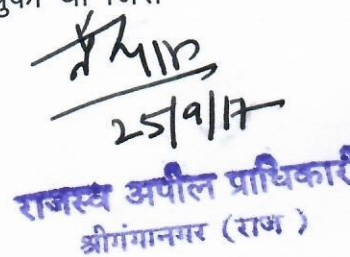 25/9/17
राजस्व अपील प्राधिकारी
श्रीगंगानगर (राज )